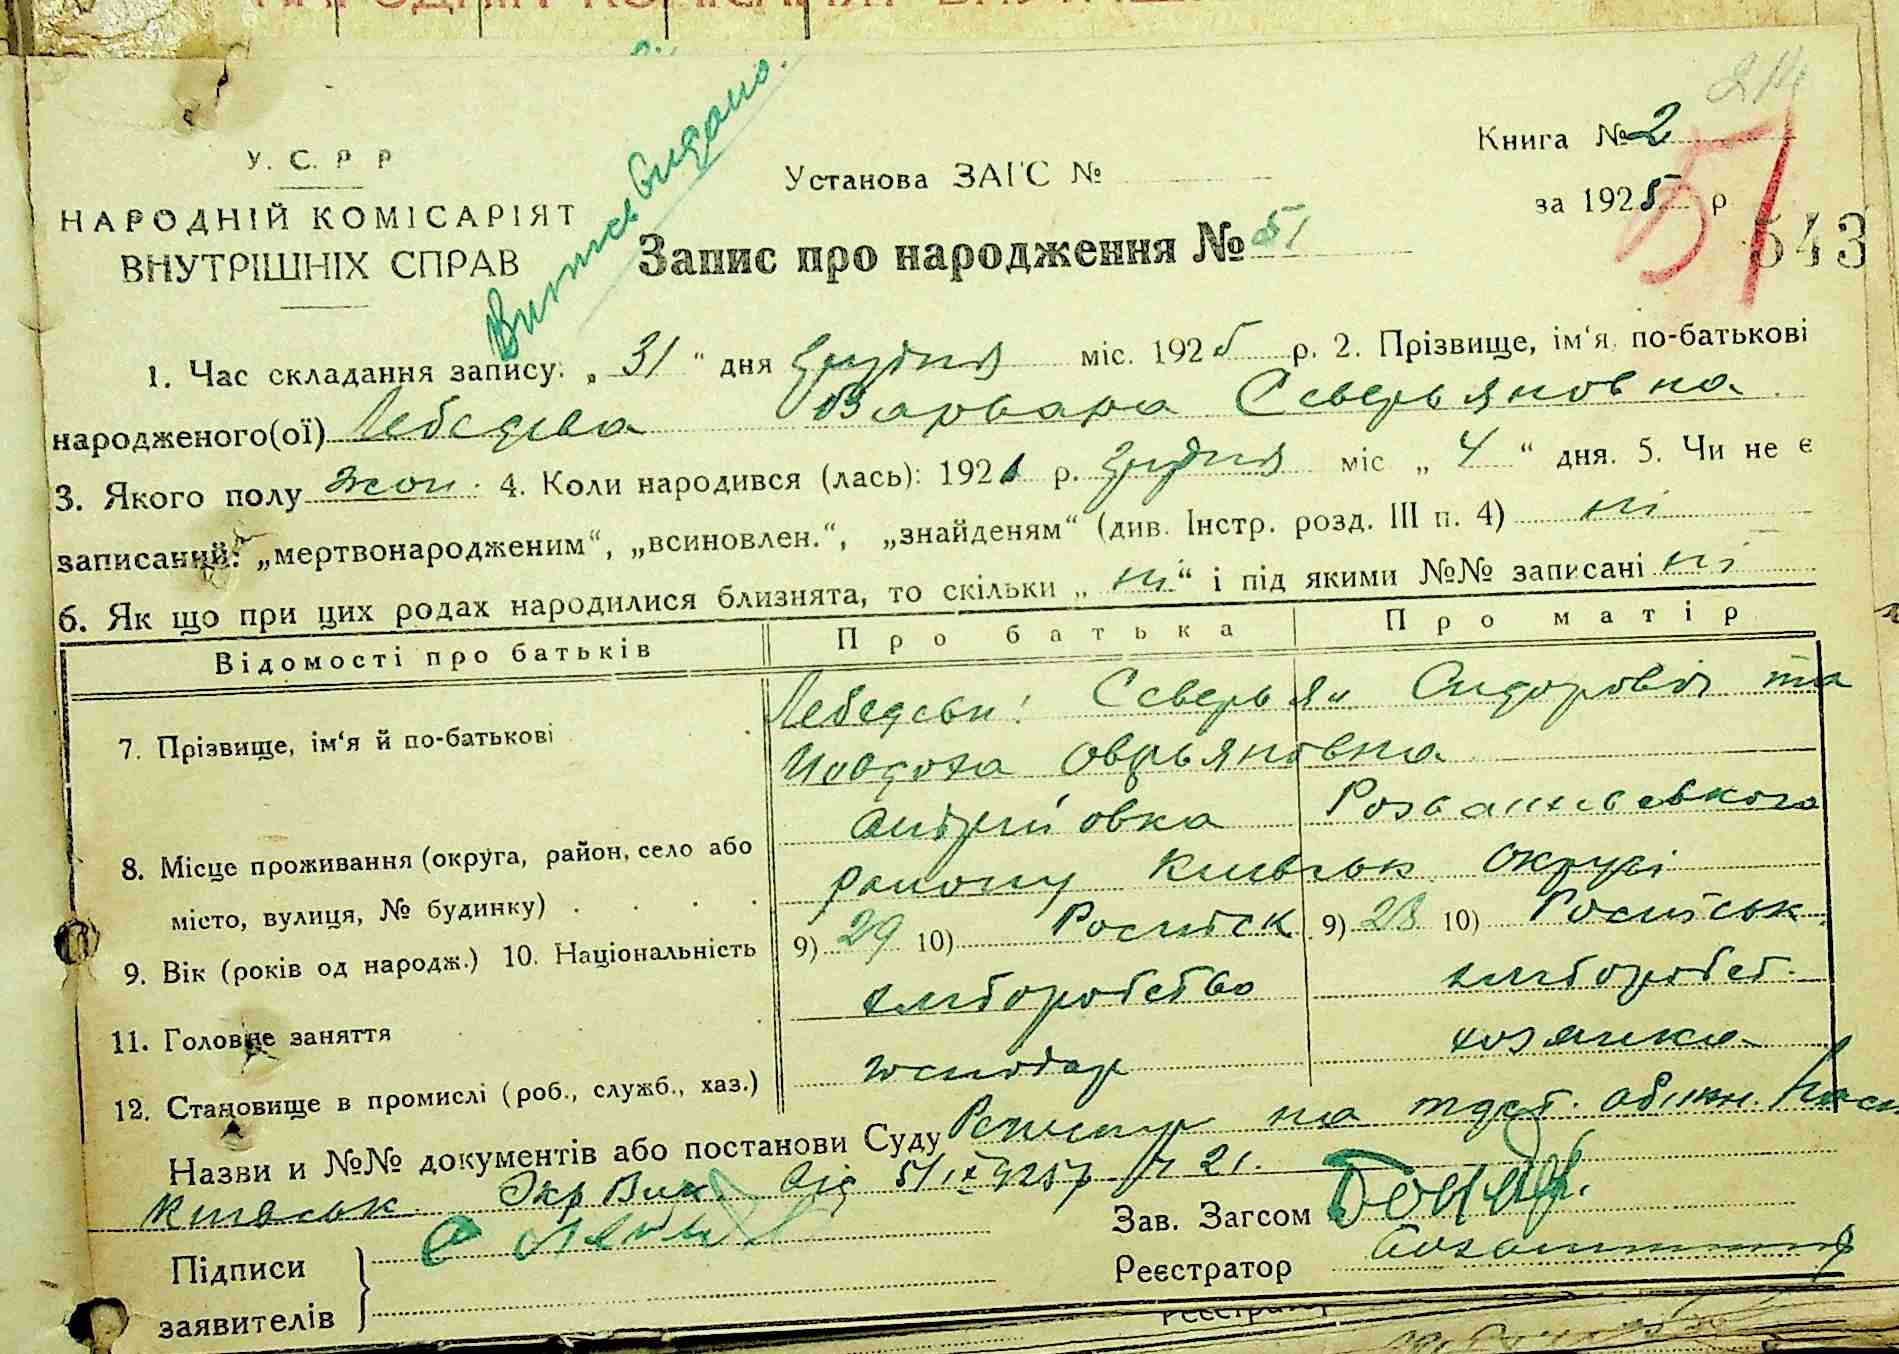 Випись видано.
214
У. С. Р Р
НАРОДНІЙ КОМІСАРІЯТ
ВНУТРІШНІХ СПРАВ
Установа ЗАГС №
Книга № 2
за 1925 р
Запис про народження № 51
51
543
1. Час складання запису: „ 31 “ дня грудня міс. 1925 р. 2. Прізвище, ім‘я, по-батькові
народженого(ої) Лебедєва Варвара Северьяновна
3. Якого полу жон. 4. Коли народився (лась): 1921 р. грудня міс „ 4 “ дня. 5. Чи не є
записаний: „мертвонародженим“, „всиновлен.“, „знайденям“ (див. Інстр. розд. III п. 4) ні
6. Як що при цих родах народилися близнята, то скільки „ ні “ і під якими №№ записані ні
Відомості про батьків Про батька Про матір
7. Прізвище, ім‘я й по-батькові Лебедєви: Северьян Сидорович та
Овдрьяновна
8. Місце проживання (округа, район, село або Андріїовка Розважевського
місто, вулиця, № будинку) району Київськ округи
9. Вік (років од народж.) 10. Національність 9) 29 10) Російск 9) 28 10) Російськ
11. Головне заняття хліборобство хлібороб.
12. Становище в промислі (роб., служб., хаз.) господар хозяйка
Назви и №№ документів або постанови Суду на підст.
Київськ. Окр Вик. від 5/ІХ 925р № 21.
Підписи
заявителів
Зав. Загсом
Реєстратор
Реєстратор